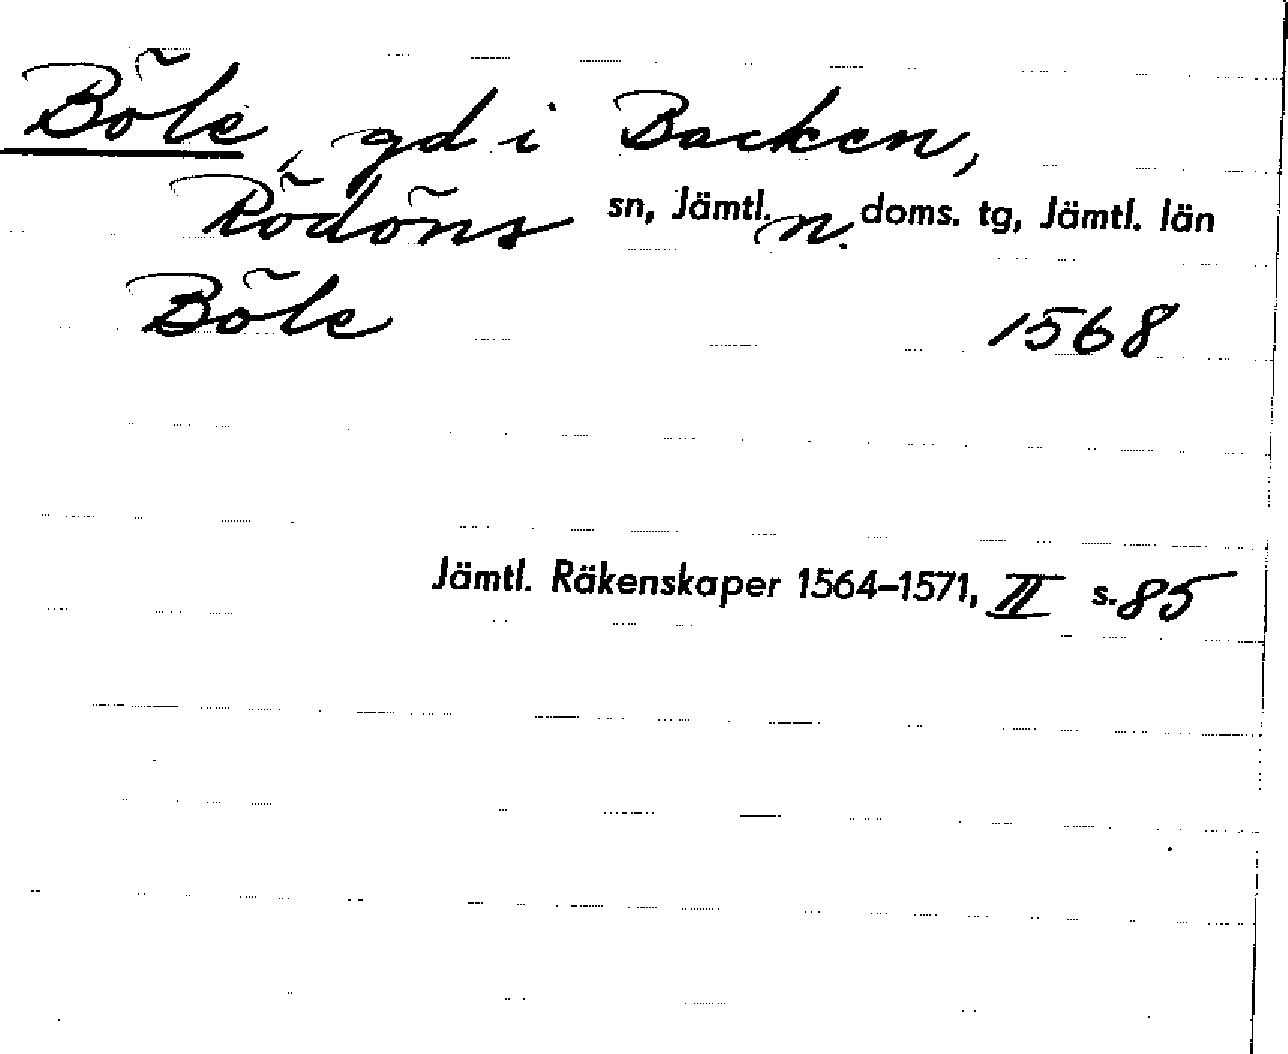 Böle, gd i Backen,
Rödöns sn, Jämtl. n. doms. tg, Jämtl. län
Böle 1568
Jämtl. Räkenskaper 1564–1571, II s. 85